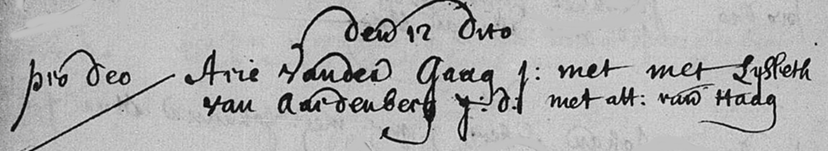 den 12 dito
pro deo Arie vander Gaag j: met met Lysbeth
van Aardenberg j: d: met att: van Haag